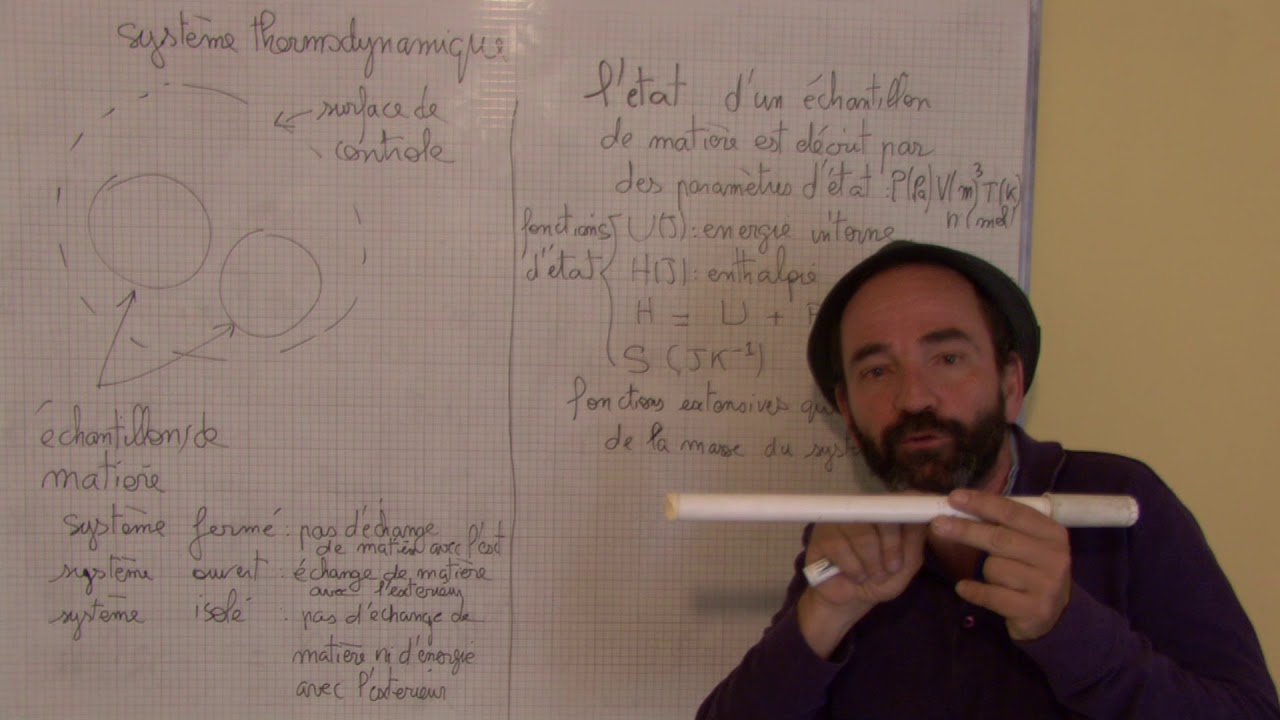 système thermodynamique
surface de
contrôle
échantillons de
matière
système fermé : pas d'échange
de matière avec l'ext
système ouvert : échange de matière
avec l'extérieur
système isolé : pas d'échange de
matière ni d'énergie
avec l'extérieur
l'état d'un échantillon
de matière est décrit par
des paramètres d'état : P(Pa) V(m³) T(K)
n(mol)
fonctions d'état
U(J) : energie interne
H(J) : enthalpie
H = U +
S (JK⁻¹)
fonctions extensives
de la masse du